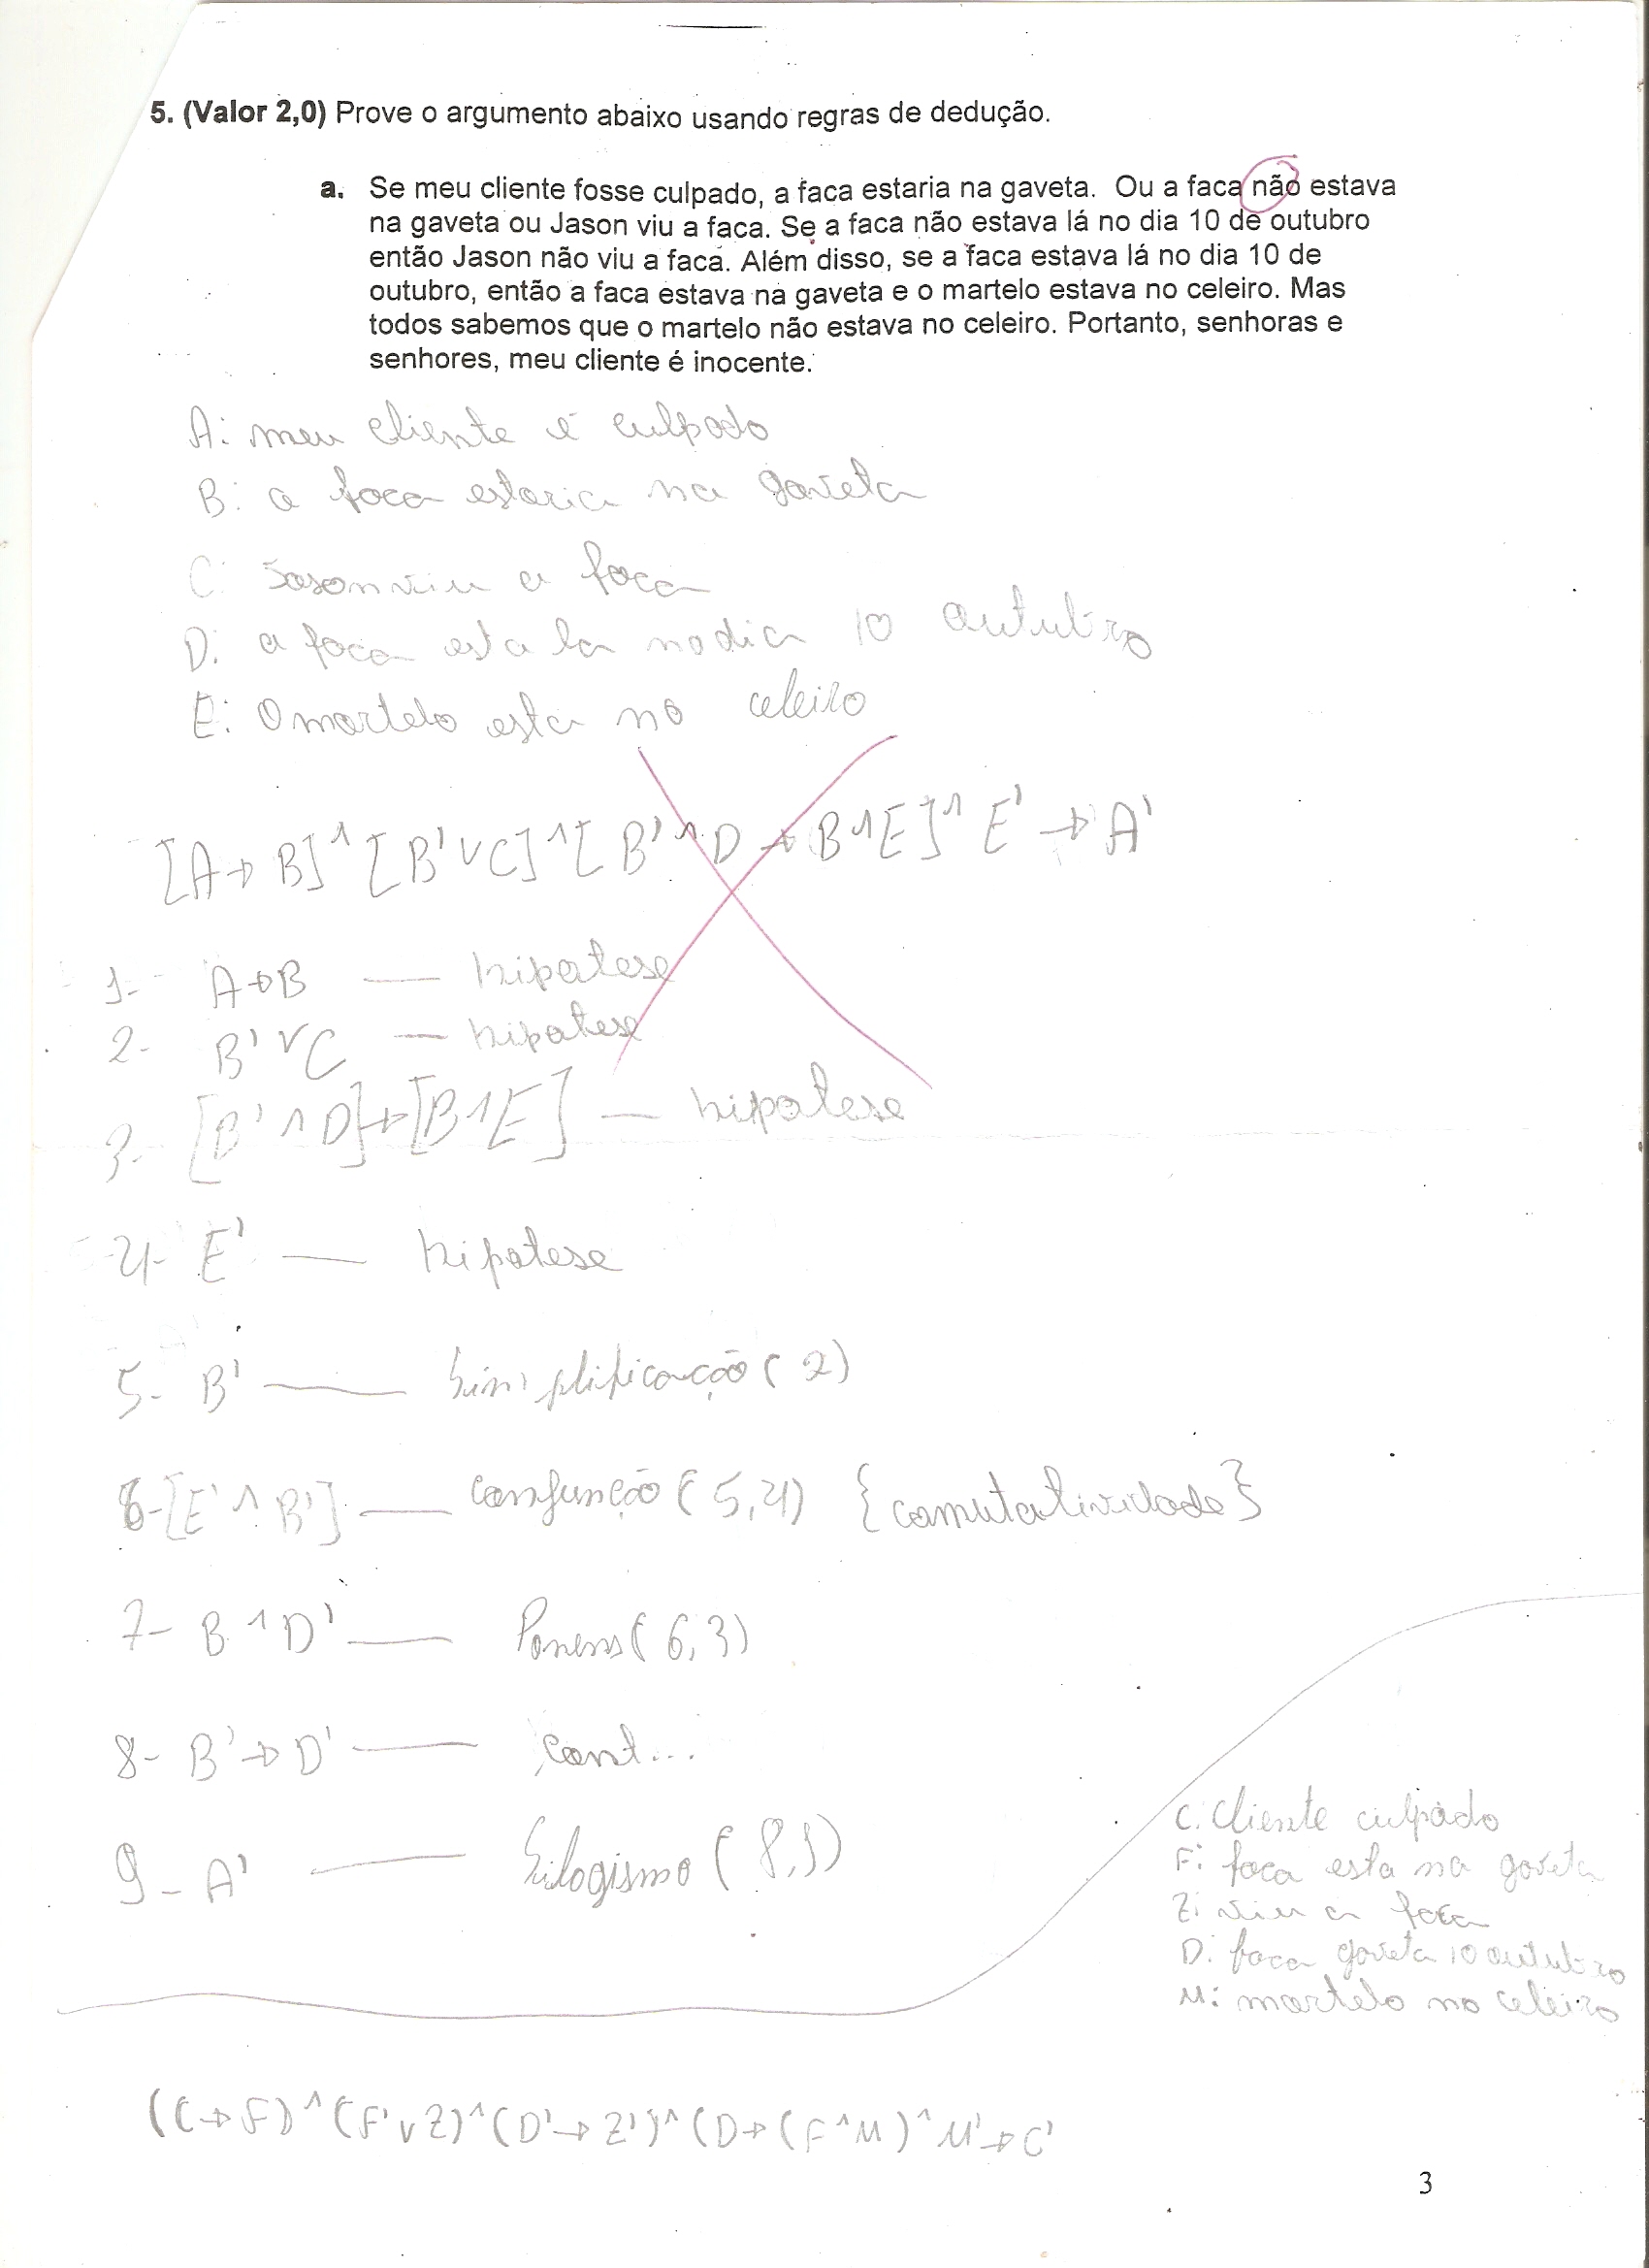 5. (Valor 2,0) Prove o argumento abaixo usando regras de dedução.
a. Se meu cliente fosse culpado, a faca estaria na gaveta. Ou a faca não estava
na gaveta ou Jason viu a faca. Se a faca não estava lá no dia 10 de outubro
então Jason não viu a faca. Além disso, se a faca estava lá no dia 10 de
outubro, então a faca estava na gaveta e o martelo estava no celeiro. Mas
todos sabemos que o martelo não estava no celeiro. Portanto, senhoras e
senhores, meu cliente é inocente.
A: meu cliente é culpado
B: a faca estaria na gaveta
C: Jason viu a faca
D: a faca esta la no dia 10 outubro
E: O martelo esta no celeiro
[A→B]^[B'vC]^[B'^D→B^E]^E'→A'
1- A→B — hipotese
2- B'vC — hipotese
3- [B'^D]→[B^E] — hipotese
4- E' — hipotese
5- B' — Simplificação (2)
6- [E'^B'] — conjunção (5,4) {comutatividade}
7- B^D' — Ponens (6,3)
8- B'→D' — cont...
9- A' — Silogismo (8,1)
C: Cliente culpado
F: faca esta na gaveta
Z: viu a faca
D: faca gaveta 10 outubro
M: martelo no celeiro
(C→F)^(F'vZ)^(D'→Z')^(D→(F^M)^M'→C'
3